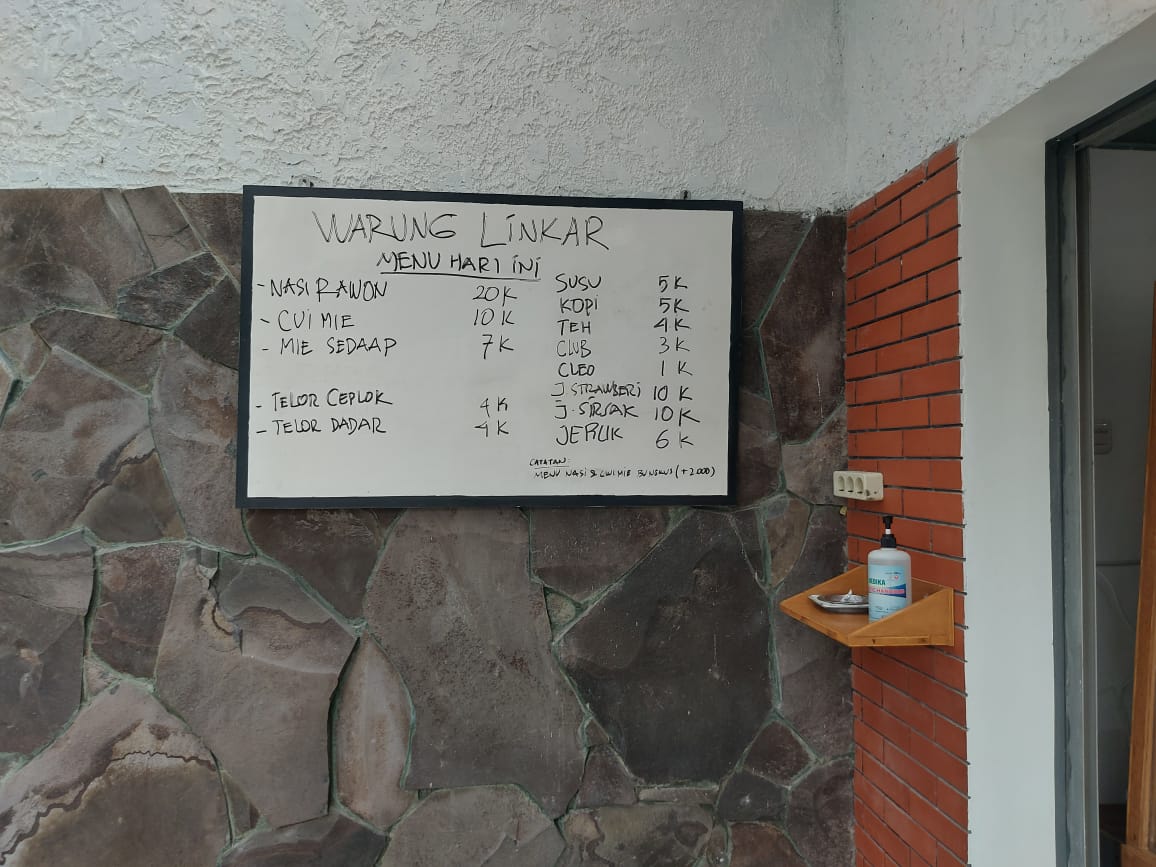 WARUNG LINKAR
MENU HARI INI
- NASI RAWON 20K
- CUI MIE 10K
- MIE SEDAAP 7K
- TELOR CEPLOK 4K
- TELOR DADAR 4K
SUSU 5K
KOPI 5K
TEH 4K
CLUB 3K
CLEO 1K
J STRAWBERI 10K
J. SIRSAK 10K
JERUK 6K
CATATAN:
MENU NASI & CWI MIE BUNGKUS (+2000)